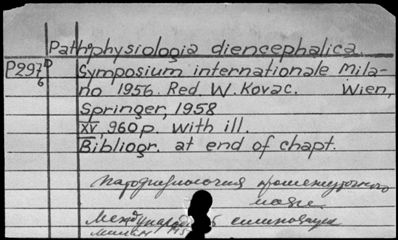 Pathophysiologia diencephalica.
P297D Symposium internationale Mila-
6 no 1956. Red. W. Kovac. Wien,
Springer, 1958
XV, 960 p. With ill.
Bibliogr. at end of chapt.
Патофизиология промежуточного
мозга.